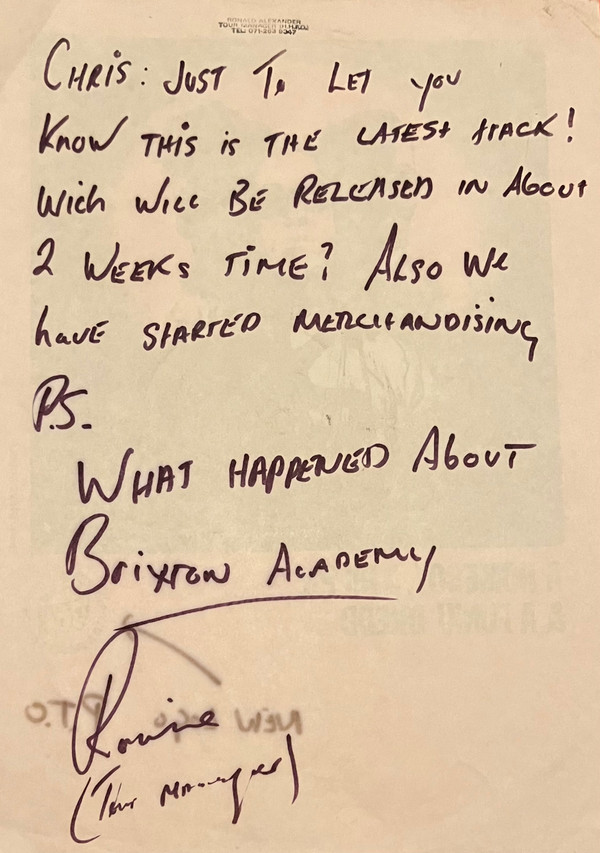 RONALD ALEXANDER
TOUR MANAGER (H.H.KO.)
TEL: 071-263 6347
CHRIS: JUST To LET you
KNOW THIS is THE LATEST tRACK!
WicH WILL BE RELEASED IN About
2 WEEKS TIME? ALSO WE
have STARTED MERCHANDISING
P.S.
WHAT HAPPENED About
Brixton ACADEMY
Ronnie
(Tour Manager)
NEW Logo P.T.O